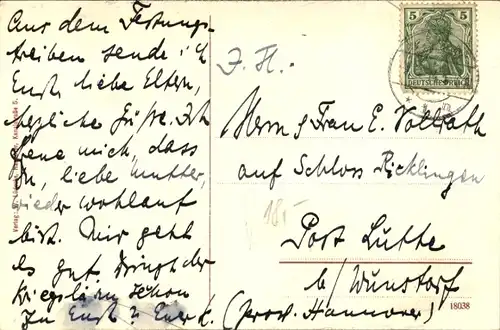 Aus dem Festungs-
treiben sende ich
Euch, liebe Eltern,
herzliche Grüße. Ich
freue mich, dass
Du, liebe Mutter,
wieder wohlauf
bist. Mir geht
es gut. Dringt der
Kriegslärm schon
zu Euch? Euer E.
J. H.:
Herrn & Frau E. Vollrath
auf Schloss Ricklingen
Post Lutte
b/ Wunstorf
(Prov. Hannover)
18.-
5 5
DEUTSCHES REICH
18038